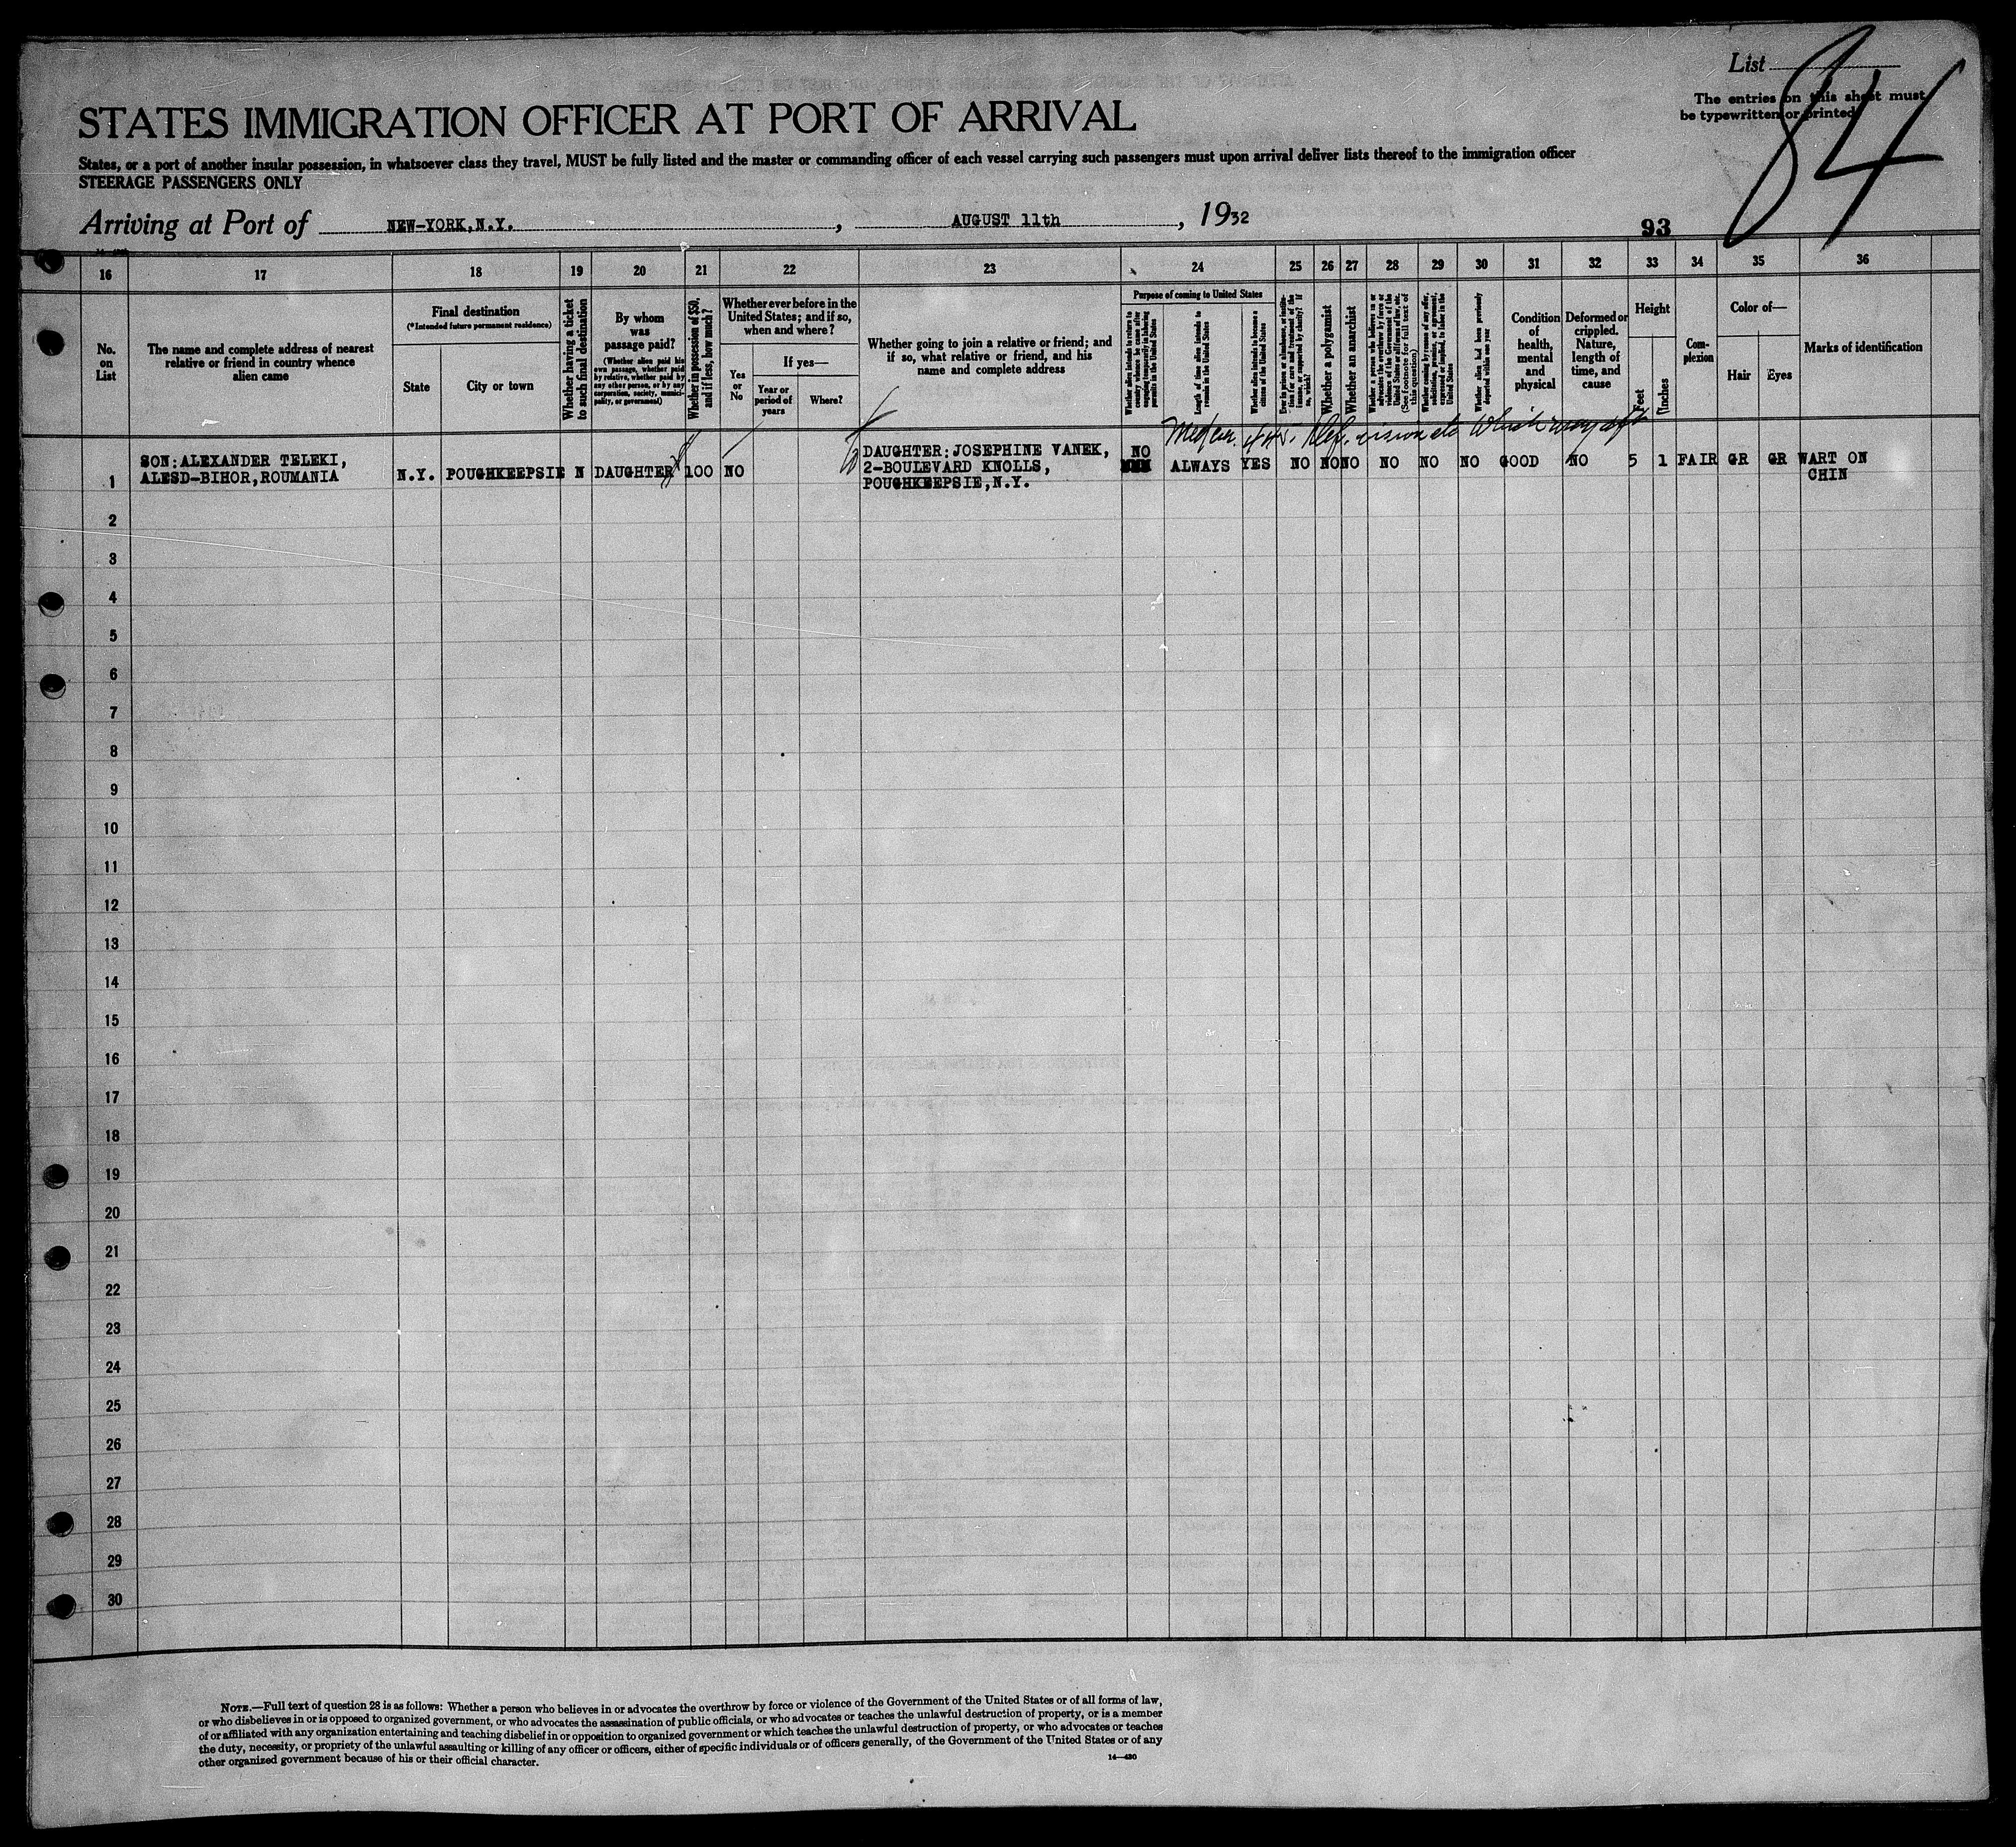 List
84
The entries on this sheet must
be typewritten or printed
STATES IMMIGRATION OFFICER AT PORT OF ARRIVAL
States, or a port of another insular possession, in whatsoever class they travel, MUST be fully listed and the master or commanding officer of each vessel carrying such passengers must upon arrival deliver lists thereof to the immigration officer
STEERAGE PASSENGERS ONLY
Arriving at Port of NEW-YORK,N.Y. , AUGUST 11th , 1932
93
16 17 18 19 20 21 22 23 24 25 26 27 28 29 30 31 32 33 34 35 36
No.
on
List
The name and complete address of nearest
relative or friend in country whence
alien came
Final destination
(*Intended future permanent residence)
State
City or town
Whether having a ticket
to such final destination
By whom
was
passage paid?
(Whether alien paid his
own passage, whether paid
by relative, whether paid by
any other person, or by any
corporation, society, munici-
pality, or government)
Whether in possession of $50,
and if less, how much?
Whether ever before in the
United States; and if so,
when and where?
Yes
or
No
If yes—
Year or
period of
years
Where?
Whether going to join a relative or friend; and
if so, what relative or friend, and his
name and complete address
Purpose of coming to United States
Whether alien intends to return to
country whence he came after
engaging temporarily in laboring
pursuits in the United States
Length of time alien intends to
remain in the United States
Whether alien intends to become a
citizen of the United States
Ever in prison or almshouse, or institu-
tion for care and treatment of the
insane, or supported by charity? If
so, which?
Whether a polygamist
Whether an anarchist
Whether a person who believes in or
advocates the overthrow by force or
violence of the Government of the
United States or all forms of law, etc.
(See footnote for full text of
this question)
Whether coming by reason of any offer,
solicitation, promise, or agreement,
expressed or implied, to labor in the
United States
Whether alien had been previously
deported within one year
Condition
of
health,
mental
and
physical
Deformed or
crippled.
Nature,
length of
time, and
cause
Height
Feet
Inches
Com-
plexion
Color of—
Hair
Eyes
Marks of identification
vision
1 SON:ALEXANDER TELEKI,
ALESD-BIHOR,ROUMANIA
N.Y. POUGHKEEPSIE N DAUGHTER 100 NO
DAUGHTER:JOSEPHINE VANEK,
2-BOULEVARD KNOLLS,
POUGHKEEPSIE,N.Y.
NO ALWAYS YES NO NO NO NO NO NO GOOD NO 5 1 FAIR GR GR WART ON
CHIN
2
3
4
5
6
7
8
9
10
11
12
13
14
15
16
17
18
19
20
21
22
23
24
25
26
27
28
29
30
NOTE.—Full text of question 28 is as follows: Whether a person who believes in or advocates the overthrow by force or violence of the Government of the United States or of all forms of law,
or who disbelieves in or is opposed to organized government, or who advocates the assassination of public officials, or who advocates or teaches the unlawful destruction of property, or is a member
of or affiliated with any organization entertaining and teaching disbelief in or opposition to organized government or which teaches the unlawful destruction of property, or who advocates or teaches
the duty, necessity, or propriety of the unlawful assaulting or killing of any officer or officers, either of specific individuals or of officers generally, of the Government of the United States or of any
other organized government because of his or their official character.
14—430